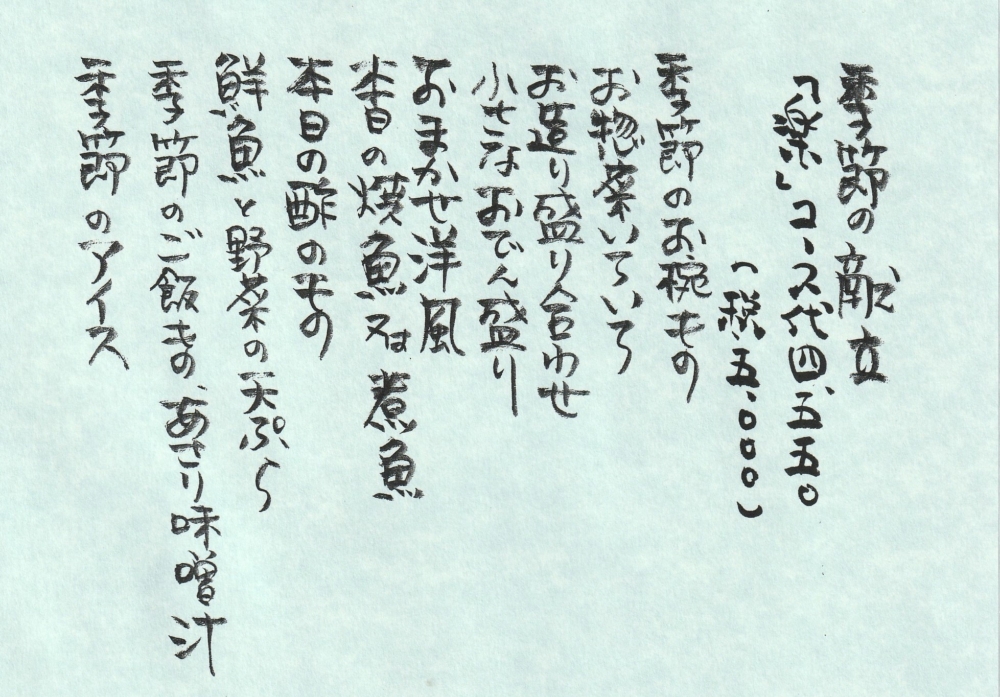 季節の献立
「楽」コース代四、五五〇
（税、五、〇〇〇）
季節のお椀もの
お惣菜いろいろ
お造り盛り合わせ
小さなおでん盛り
おまかせ洋風
本日の焼魚又は煮魚
本日の酢のもの
鮮魚と野菜の天ぷら
季節のご飯もの、あさり味噌汁
季節のアイス